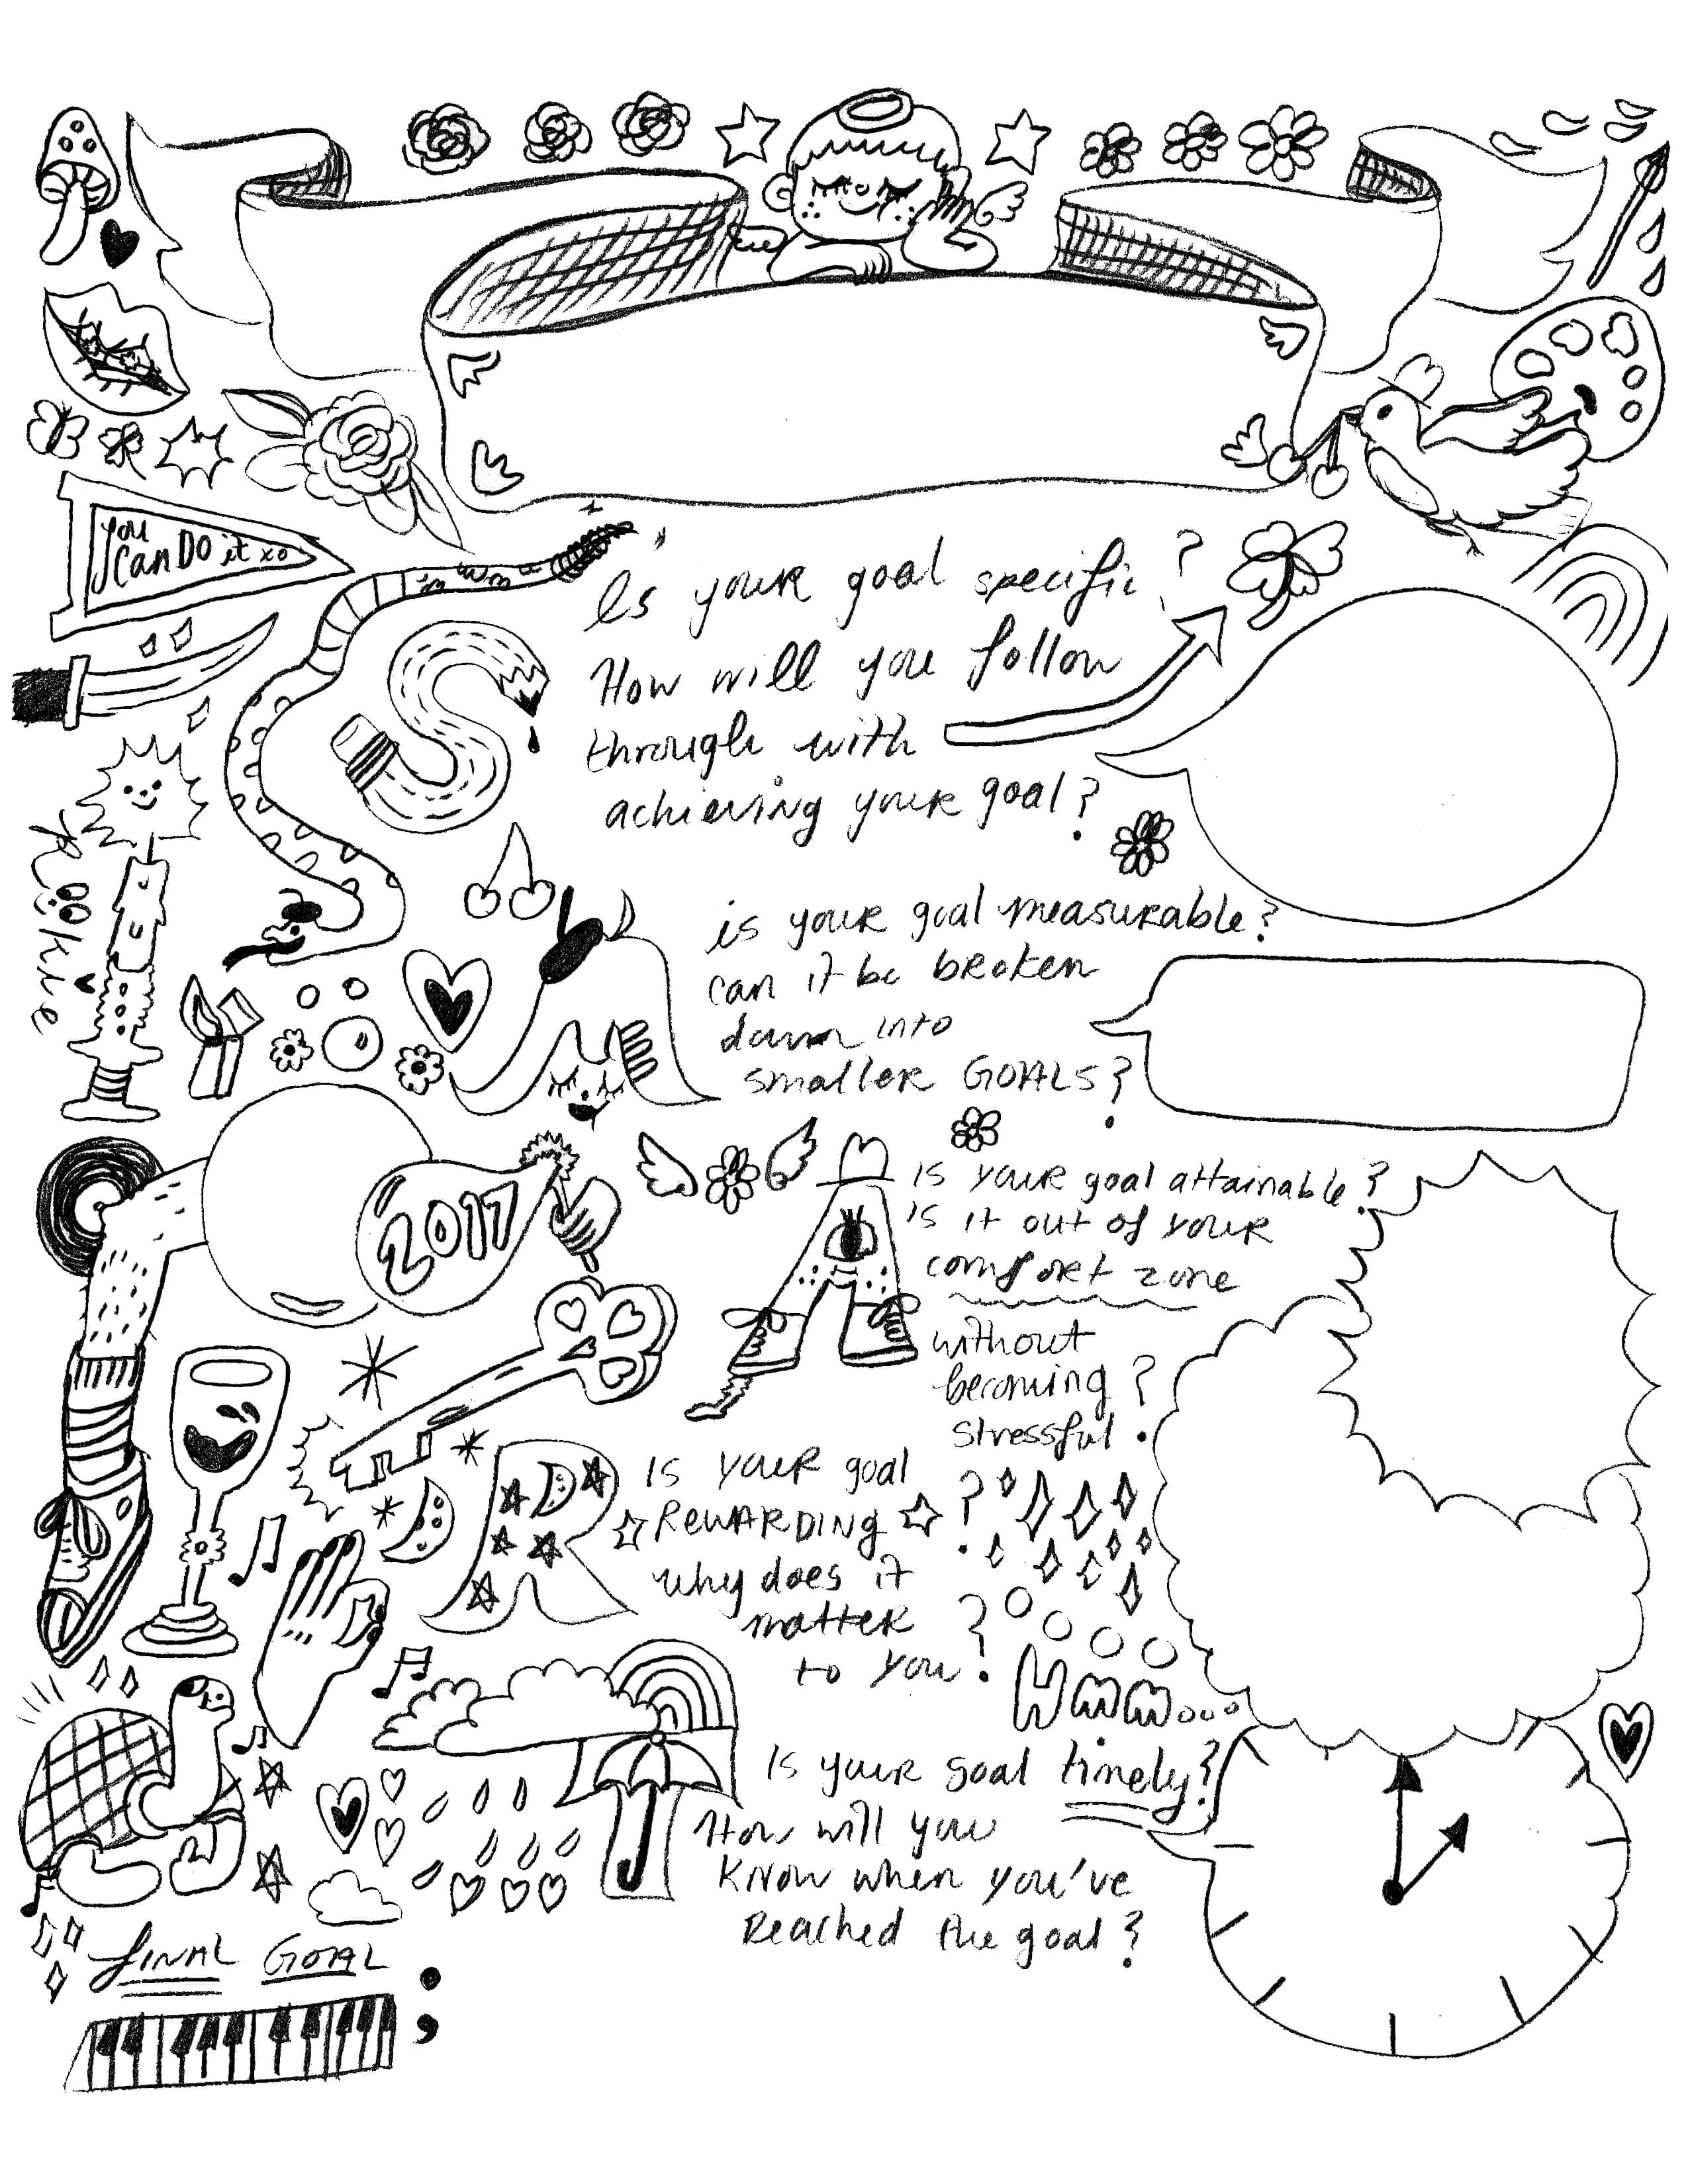 you
can DO it xo
Is your goal specific?
How will you follow
through with
achieving your goal?
S
Rookie
is your goal measurable?
can it be broken
down into
smaller GOALS?
M
2017
A
is your goal attainable?
is it out of your
comfort zone
without
becoming
stressful?
R
Is your goal
REWARDING?
why does it
matter
to you?
Hmm...
T
Is your goal timely?
How will you
know when you've
Reached the goal?
FINAL GOAL: